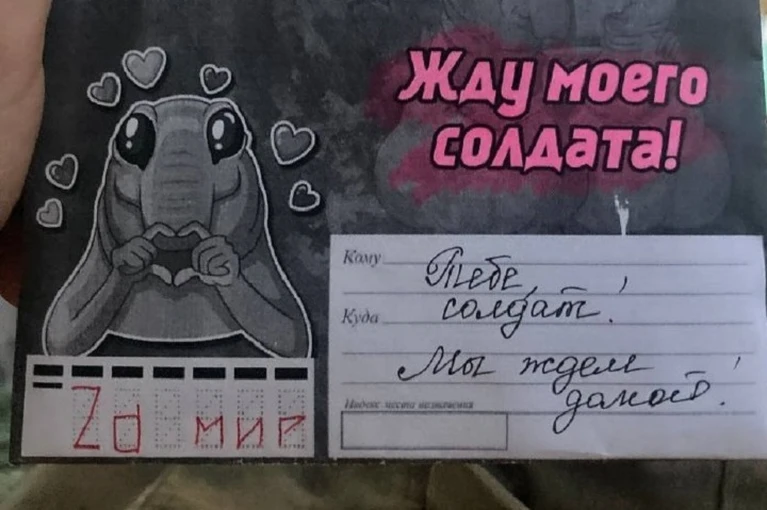 Жду моего
солдата!
Кому Тебе,
Куда солдат!
Мы ждем
домой!
Индекс места назначения
Zа мир